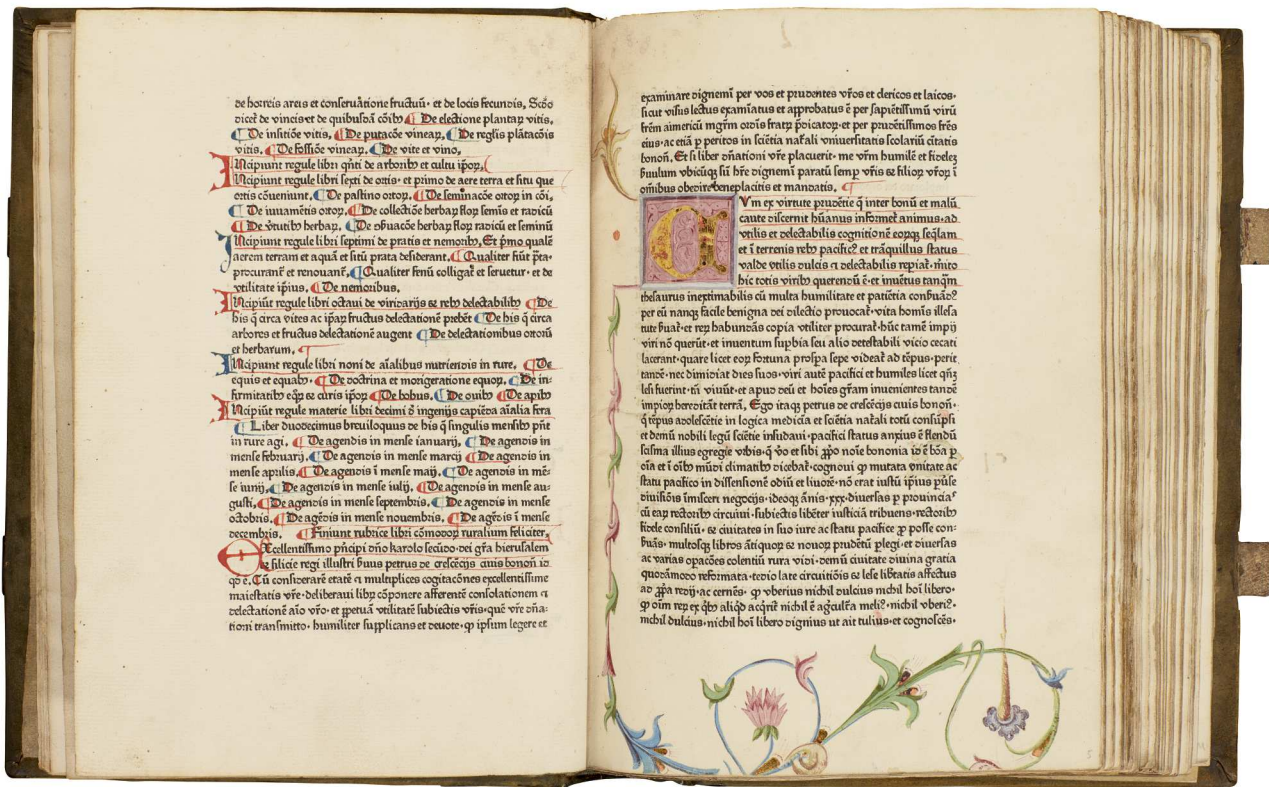 de horreis areis et conseruatione fructuū· et de locis fecundis, Scdo
dicet de vineis et de quibusdā cōibꝫ ¶ De electione plantaꝝ vitis,
¶ De insitiōe vitis, ¶ De putacōe vineaꝝ, ¶ De reglis plātacōis
vitis, ¶ De fossiōe vineaꝝ, ¶ De vite et vino,
Incipiunt regule libri qn̄ti de arboribꝫ et cultu ipoꝝ,
Incipiunt regule libri sexti de ortis· et primo de aere terra et situ que
ortis cōueniunt, ¶ De pastino ortoꝝ, ¶ De seminacōe ortoꝝ in cōi,
¶ De iuuamētis ortoꝝ, ¶ De collectiōe herbaꝝ floꝝ semīs et radicū
¶ De v̄tutibꝫ herbaꝝ, ¶ De ꝯseruacōe herbaꝝ floꝝ radicū et seminū
Incipiunt regule libri septimi de pratis et nemoribꝫ, Et p̄mo qualē
aerem terram et aquā et sitū prata desiderant, ¶ Qualiter fiūt p̄ta·
procurant̄ et renouant̄, ¶ Qualiter fenū colligat̄ et seruetur· et de
vtilitate ip̄ius, ¶ De nemoribus,
Incipiūt regule libri octaui de viridarijs ⁊ rebꝫ delectabilibꝫ ¶ De
his q̄ circa vites ac ip̄aꝝ fructus delectationē prebēt ¶ De his q̄ circa
arbores et fructus delectationē augent ¶ De delectationibus ortoꝝ
et herbarum,
Incipiunt regule libri noni de aīalibus nutriendis in rure, ¶ De
equis et equabꝫ· ¶ De doctrina et morigeratione equoꝝ, ¶ De in-
firmitatibꝫ eqꝝ ⁊ curis ipoꝝ ¶ De bobus, ¶ De ouibꝫ ¶ De apibꝫ
Incipiūt regule materie libri decimi d̄ ingenijs capiēda aīalia fera
¶ Liber duodecimus breuiloquus de his q̄ singulis mensibꝫ sūt
in rure agi, ¶ De agendis in mense ianuarij, ¶ De agendis in
mense februarij, ¶ De agendis in mense marcij ¶ De agendis in
mense aprilis, ¶ De agendis ī mense maij, ¶ De agendis in mē-
se iunij, ¶ De agendis in mense iulij, ¶ De agendis in mense au-
gusti, ¶ De agendis in mense septembris, ¶ De agendis in mense
octobris, ¶ De agēdis in mense nouembris, ¶ De agēdis ī mense
decembris, ¶ Finiunt rubrice libri cōmodoꝝ ruralium feliciter,
Excellentissimo p̄ncipi dn̄o karolo secūdo· dei gr̄a hierusalem
⁊ sicilie regi illustri suus petrus de crescēcijs ciuis bononi id
qd ē, Cū considerarē etatē ⁊ multiplices cogitacōnes excellentissime
maiestatis vr̄e· deliberaui librꝫ cōponere afferentē consolationem ⁊
delectationē aīo vr̄o· et ꝑpetuā vtilitatē subiectis vr̄is· quē vr̄e dn̄a-
tioni transmitto· humiliter supplicans et deuote· ꝙ ipsum legere et
examinare dignemī per vos et prudentes vr̄os et clericos et laicos·
sicut visus lectus examīatus et approbatus ē per sapiētissimū virū
fr̄em aimericū mgr̄m ordīs fratꝝ p̄dicatoꝝ· et per prudētissimos fr̄es
eius· ac etiā ꝑ peritos in sciētia nat̄ali vniuersitatis scolariū ciitatis
bonon̄, Et si liber dn̄ationi vr̄e placuerit· me vr̄m humilē et fidelez
suulum vbicūqꝫ sū hr̄e dignemī paratū semꝑ vr̄is ⁊ filioꝝ vr̄oꝝ ī
om̄ibus obedire beneplacitis et mandatis,
CVm ex virtute prudētie q̄ inter bonū et malū
caute discernit hūanus informet̄ animus· ad
vtilis et delectabilis cognitionē eorꝗꝫ seq̄lam
et ī terrenis rebꝫ pacificꝰ et trāquillus status
valde vtilis dulcis ⁊ delectabilis repiat̄· m̄ito
hic totis viribꝫ querendū ē· et inuētus tanqꝫ
thesaurus inextimabilis cū multa humilitate et patiētia conseruādꝰ
per eū nanqꝫ facile benigna dei dilectio prouocat̄· vita homīs illesa
tute suat̄· et reꝝ habundās copia vtiliter procurat̄· hūc tamē impij
viri nō querūt· et inuentum suꝑbia seu alio detestabili vicio cecati
lacerant· quare licet eoꝝ fortuna prospa sepe videat̄ ad tēpus· perit
tandē· nec dimidiāt dies suos· viri autē pacifici et humiles licet qn̄qꝫ
lesi fuerint· tn̄ viuūt· et apud deū et hoīes gr̄am inuenientes tandē
impioꝝ hereditāt terrā, Ego itaqꝫ petrus de crescēcijs ciuis bonon̄·
q̄ tēpus adolescētie in logica medicīa et sciētia nat̄ali totū consūpsi
et demū nobili legū sciētie insudaui· pacifici status anxius ē flendū
scisma illius egregie vrbis· q̄ v̄o et sibi ꝓpo noīe bononia id ē bōa ꝑ
oīa et ī oībꝫ mūdi climatibꝫ dicebat̄· cognoui ꝙ mutata vnitate ac
statu pacifico in dissensionē odiū et liuorē· nō erat iustū ip̄ius ꝑuse
diuisiōis īmisceri negocijs· ideoqꝫ ānis ·xxx· diuersas ꝑ prouincias
cū eaꝝ rectoribꝫ circuiui· subiectis libēter iusticiā tribuens· rectoribꝫ
fidele consiliū· ⁊ ciuitates in suo iure ac statu pacifice ꝓ posse con-
suās· multosqꝫ libros ātiquoꝝ ⁊ nouoꝝ prudētū ꝑlegi· et diuersas
ac varias opacōes colentiū rura vidi· demū ciuitate diuina gratia
quodāmodo reformata· tedio late circuitiōis ⁊ lese libtatis affectus
ad ꝓpa redij· ac cernēs· ꝙ vberius nichil dulcius nichil hoī libero·
ꝙ oīm reꝝ ex q̄bꝫ aliqd acqrit̄ nichil ē agͥcult̄a meliꝰ· nichil vberiꝰ·
nichil dulcius· nichil hoī libero dignius ut ait tulius· et cognoscēs·